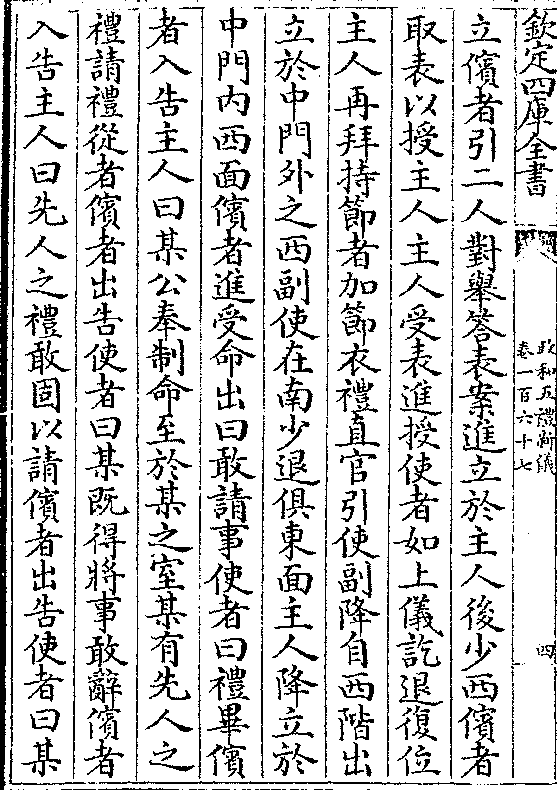 欽定四庫全書
政和五禮新儀
卷一百六十七
四
立儐者引二人對舉答表案進立於主人後少西儐者
取表以授主人主人受表進授使者如上儀訖退復位
主人再拜持節者加節衣禮直官引使副降自西階出
立於中門外之西副使在南少退俱東面主人降立於
中門内西面儐者進受命出曰敢請事使者曰禮畢儐
者入告主人曰某公奉制命至於某之室某有先人之
禮請禮從者儐者出告使者曰某既得將事敢辭儐者
入告主人曰先人之禮敢固以請儐者出告使者曰某